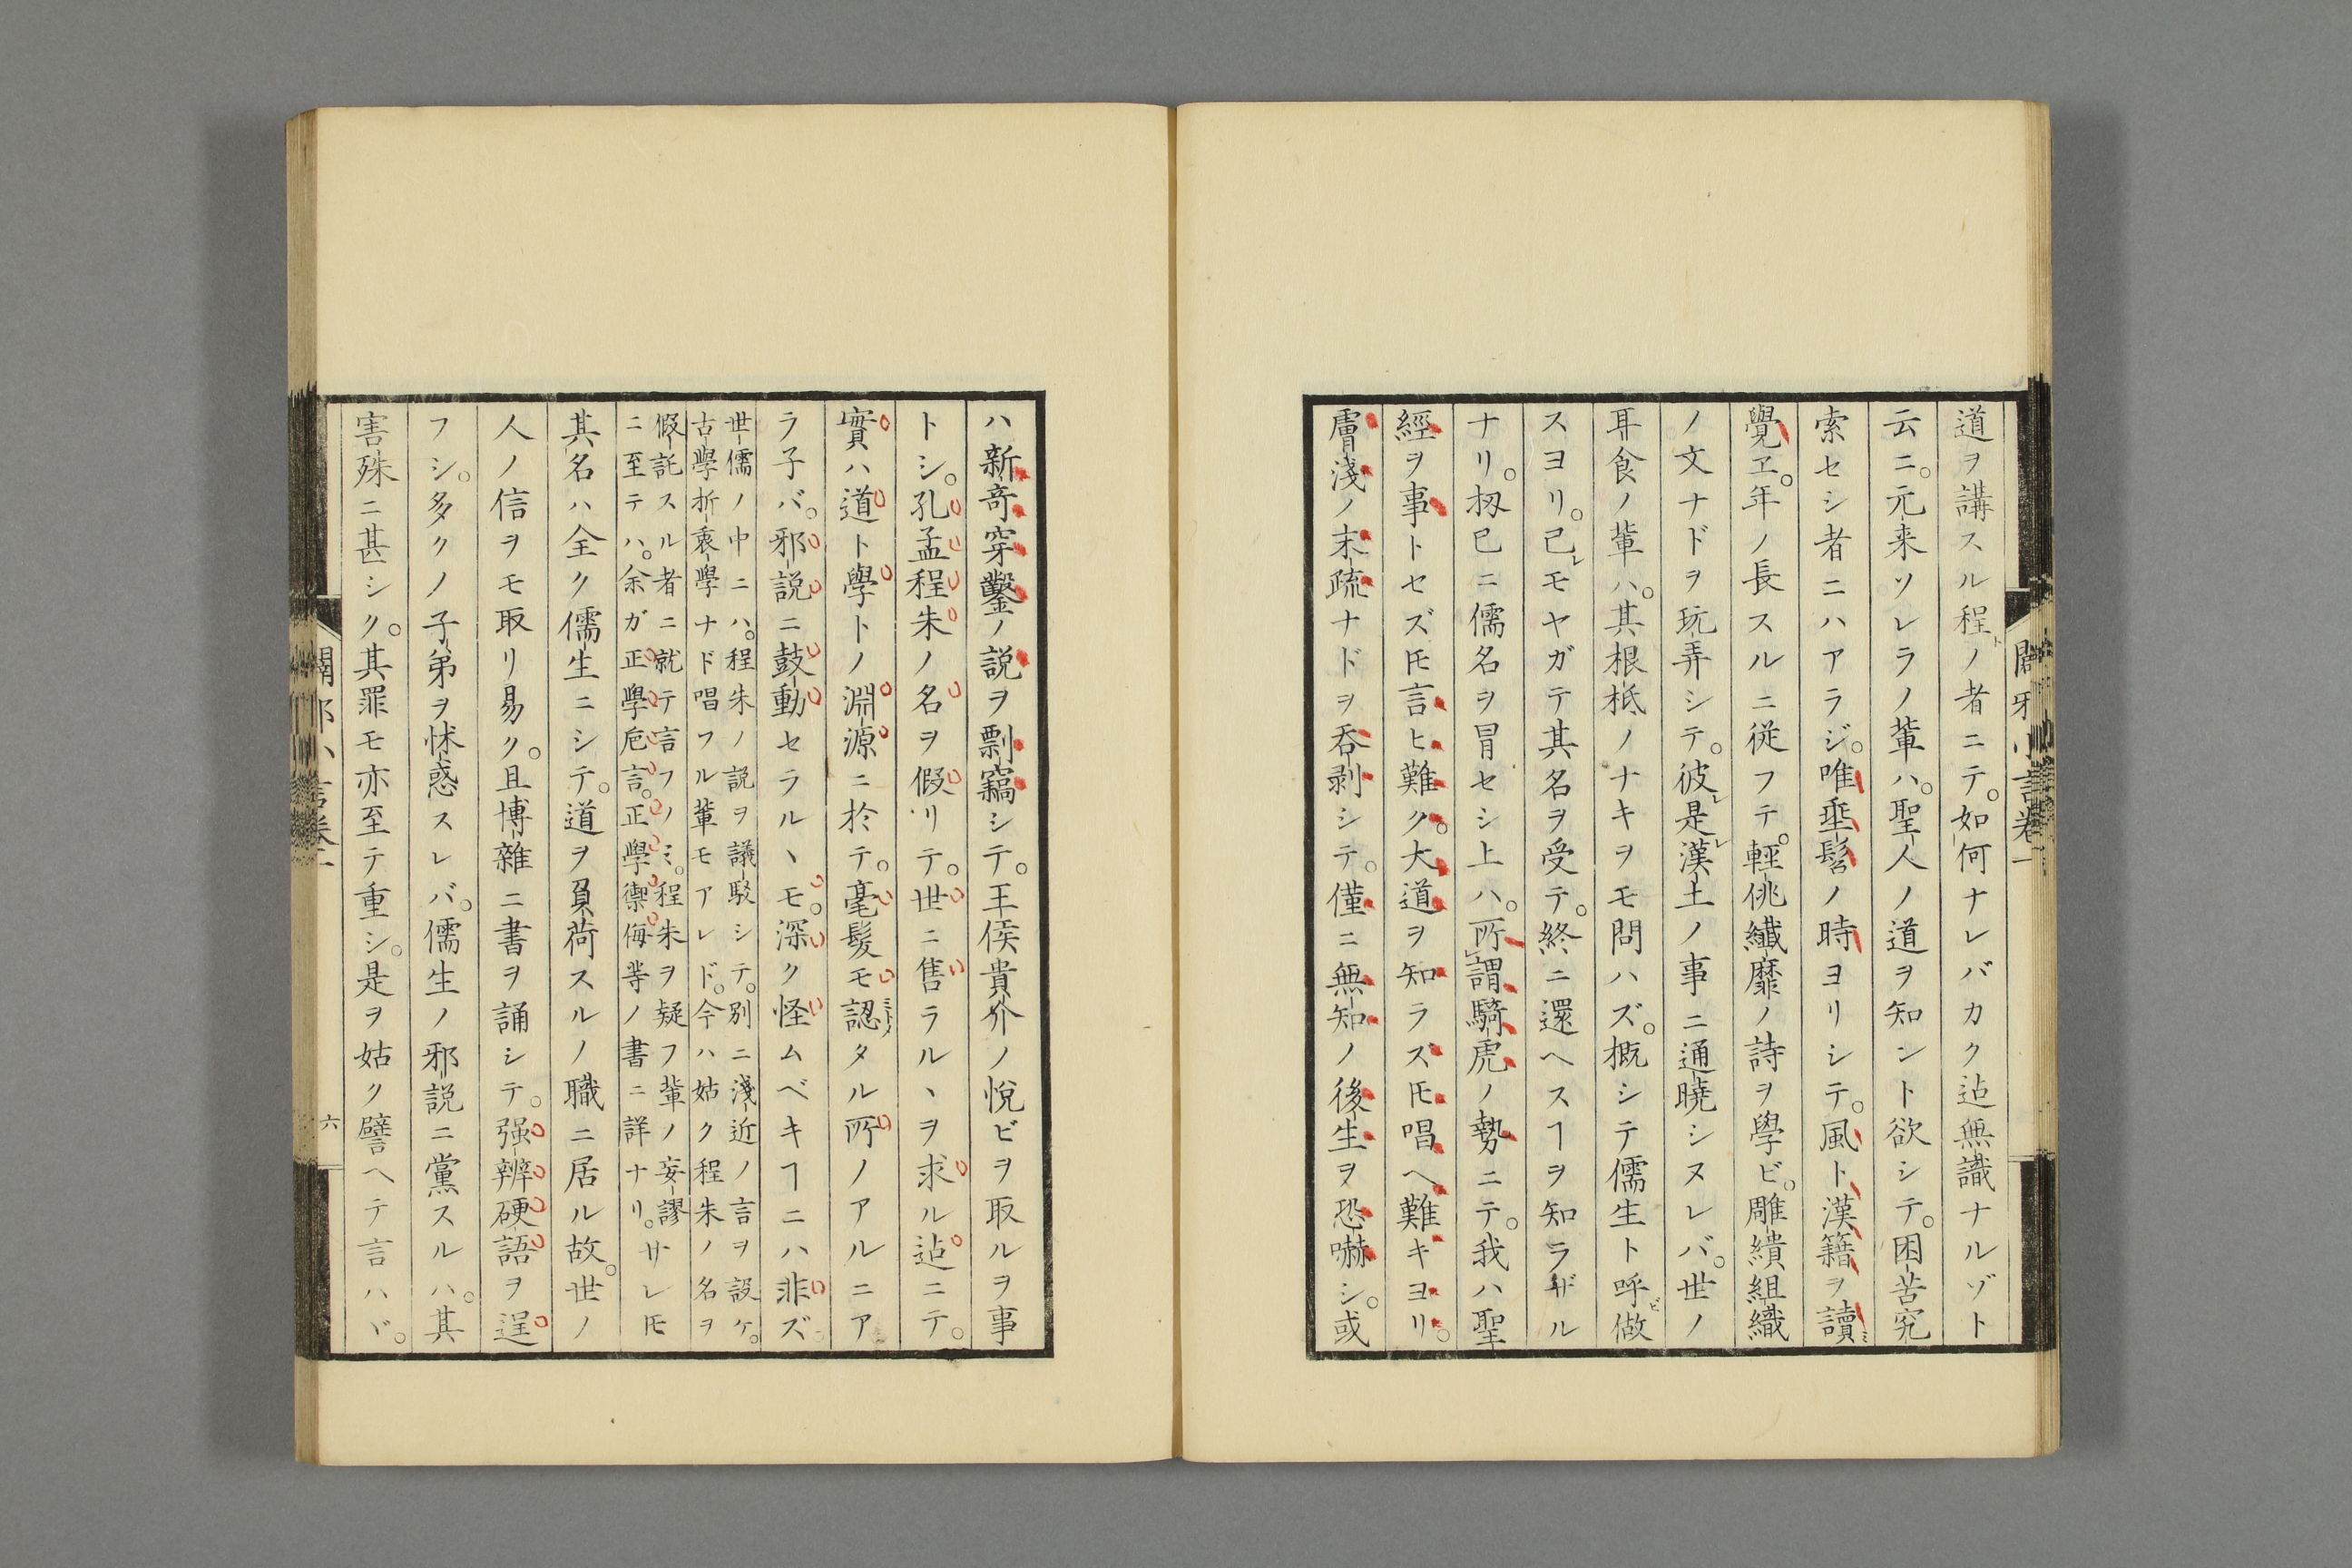 道ヲ講スル程ノ者ニテ。如何ナレバカク迠無識ナルゾト
云ニ。元来ソレラノ輩ハ。聖人ノ道ヲ知ント欲シテ。困苦究
索セシ者ニハアラジ。唯埀髫ノ時ヨリシテ。風ト漢籍ヲ讀ミ
覺ヱ。年ノ長スルニ従フテ。輕佻纎靡ノ詩ヲ學ビ。雕繢組織
ノ文ナドヲ玩弄シテ。彼レ是レ漢土ノ事ニ通曉シヌレバ。世ノ
耳食ノ輩ハ。其根柢ノナキヲモ問ハズ。概シテ儒生ト呼ビ做
スヨリ。己レモヤガテ其名ヲ受テ。終ニ還ヘスヿヲ知ラザル
ナリ。扨巳ニ儒名ヲ冒セシ上ハ。所謂騎虎ノ勢ニテ。我ハ聖
經ヲ事トセズ𪜈言ヒ難ク。大道ヲ知ラズ𪜈唱ヘ難キヨリ。
膚淺ノ末疏ナドヲ呑剥シテ。僅ニ無知ノ後生ヲ恐嚇シ。或
ハ新竒穿鑿ノ説ヲ剽竊シテ。王侯貴介ノ悅ビヲ取ルヲ事
トシ。孔孟程朱ノ名ヲ假リテ。世ニ售ラルヽヲ求ル迠ニテ。
實ハ道ト學トノ淵源ニ於テ。毫髪モ認タル所ノアルニア
ラ子バ。邪説ニ鼓動セラルヽモ。深ク怪ムベキヿニハ非ズ
世儒ノ中ニハ。程朱ノ説ヲ議駁シテ。別ニ淺近ノ言ヲ設ケ。
古學折衷學ナド唱フル輩モアレド。今ハ姑ク程朱ノ名ヲ
假託スル者ニ就テ言フノミ。程朱ヲ疑フ輩ノ妄謬
ニ至テハ。余ガ正學巵言。正學禦侮等ノ書ニ詳ナリ。サレ𪜈
其名ハ全ク儒生ニシテ。道ヲ負荷スルノ職ニ居ル故。世ノ
人ノ信ヲモ取リ易ク。且博雜ニ書ヲ誦シテ。强辨硬語ヲ逞
フシ。多クノ子弟ヲ怵惑スレバ。儒生ノ邪説ニ黨スルハ。其
害殊ニ甚シク。其罪モ亦至テ重シ。是ヲ姑ク譬ヘテ言ハヾ。
六